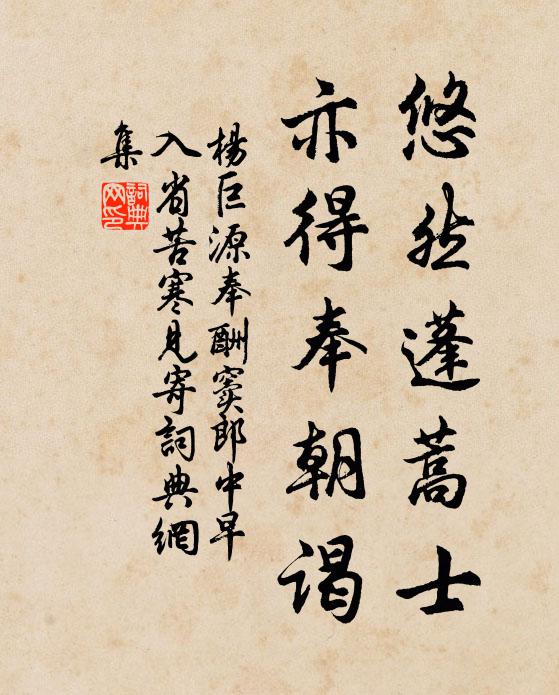 悠然蓬蒿士
亦得奉朝谒
楊巨源奉酬窦郎中早
入省苦寒見寄詞典網
集
詞典网印